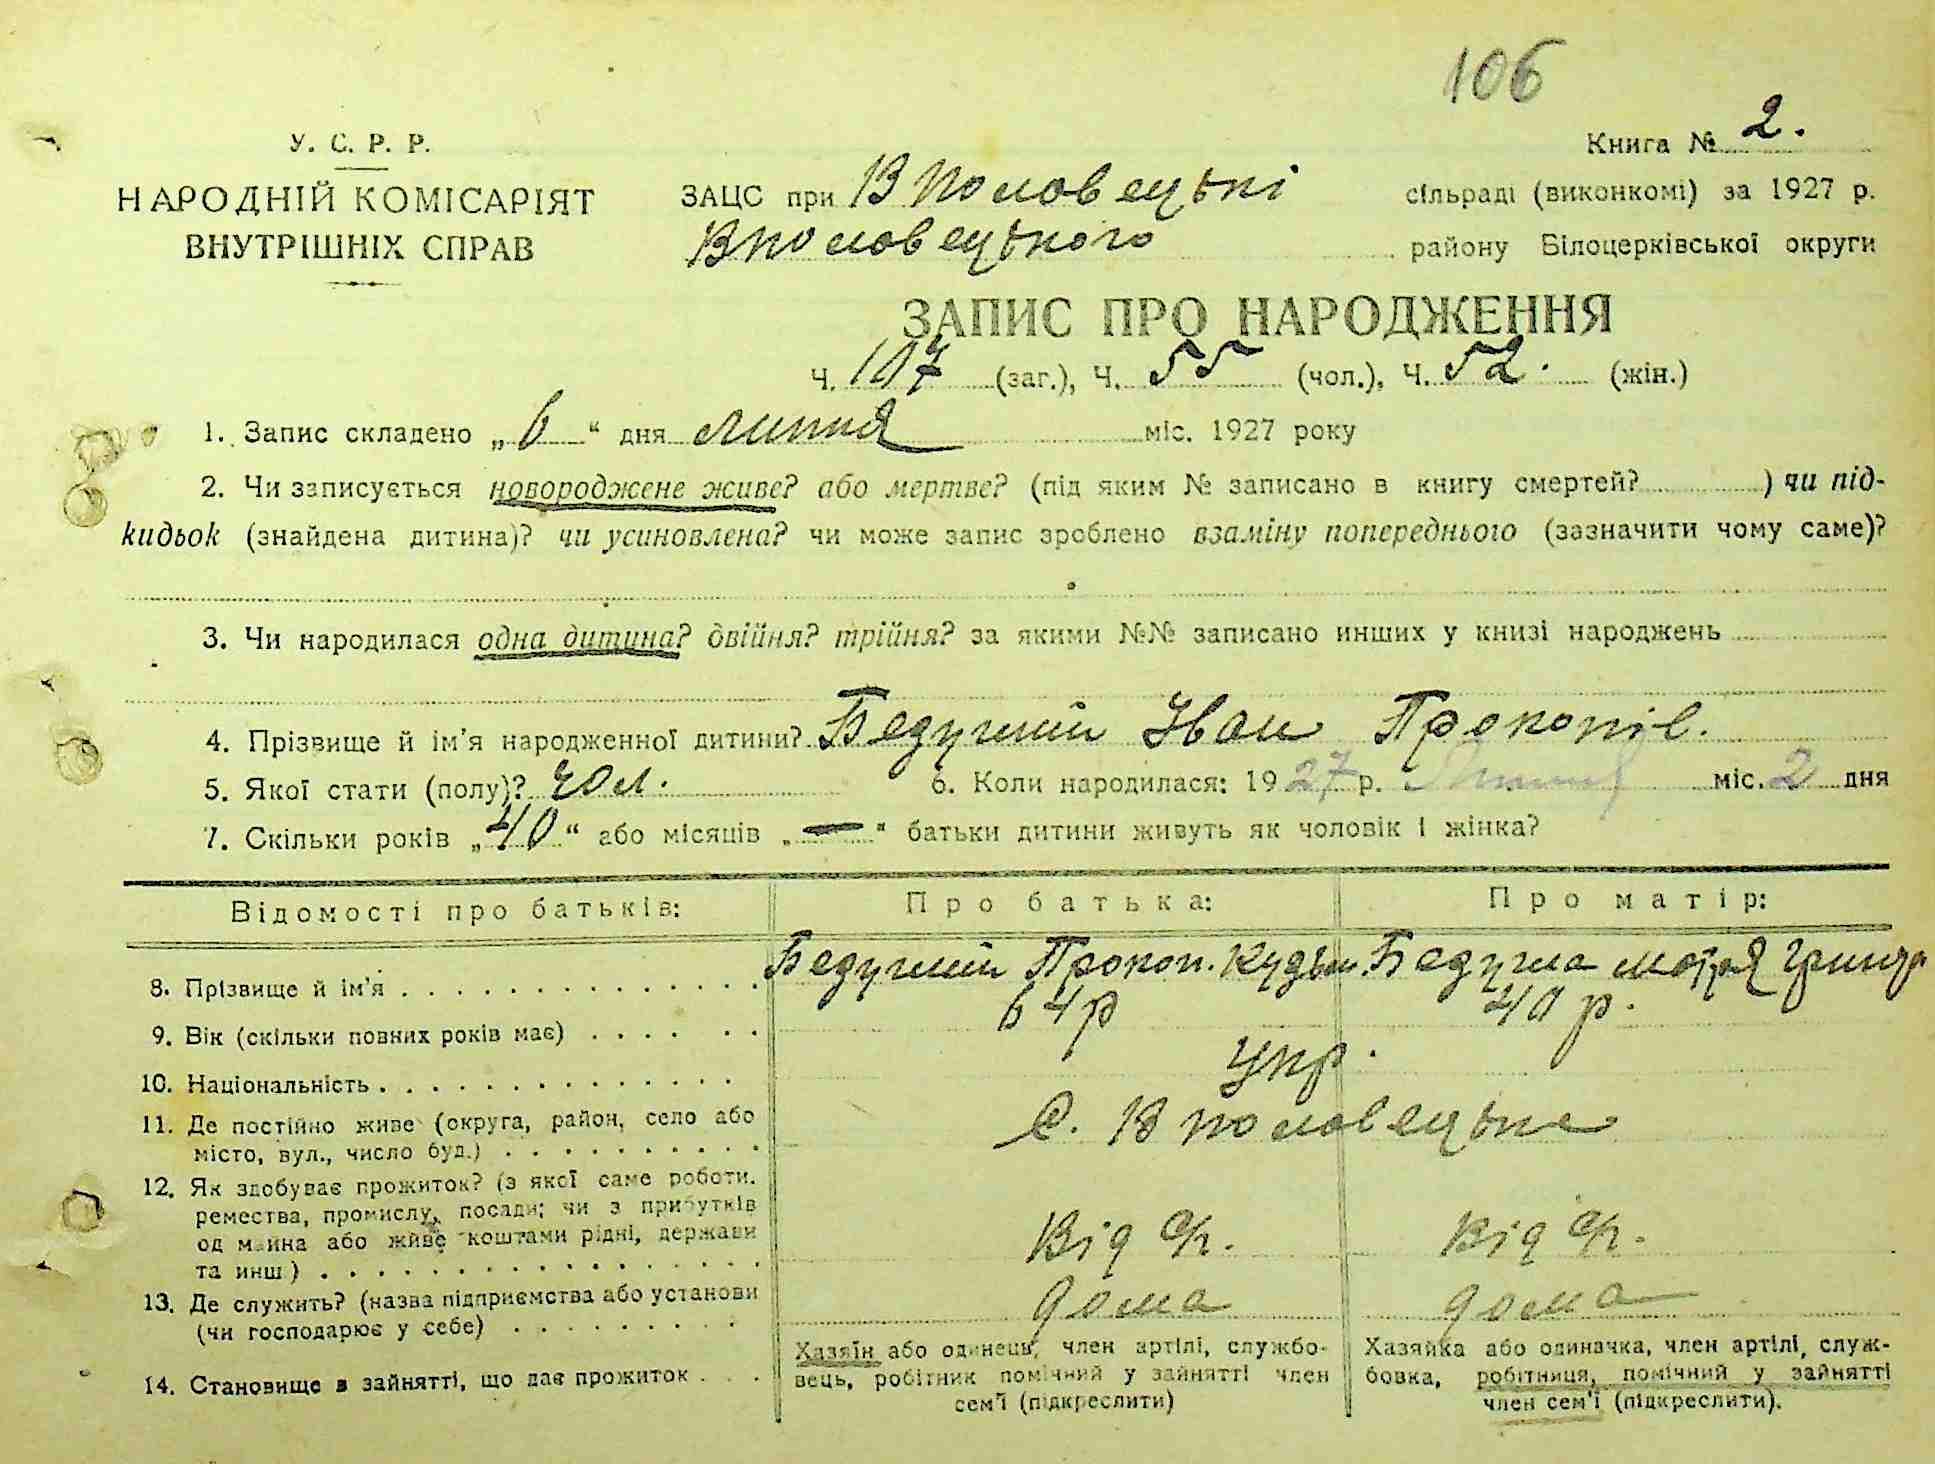 106
У. С. Р. Р.
НАРОДНІЙ КОМІСАРІЯТ
ВНУТРІШНІХ СПРАВ
Книга № 2.
ЗАЦС при В Половецькі сільраді (виконкомі) за 1927 р.
Вполовецького району Білоцерківської округи
ЗАПИС ПРО НАРОДЖЕННЯ
Ч. 107 (заг.), Ч. 55 (чол.), Ч. 52. (жін.)
1. Запис складено „ 6 “ дня липня міс. 1927 року
2. Чи записується новороджене живе? або мертве? (під яким № записано в книгу смертей? ) чи під-
кидьок (знайдена дитина)? чи усиновлена? чи може запис зроблено взаміну попереднього (зазначити чому саме)?
3. Чи народилася одна дитина? двійня? трійня? за якими №№ записано инших у книзі народжень
4. Прізвище й ім'я народженної дитини? Бедугий Іван Прокопів.
5. Якої стати (полу)? чол. 6. Коли народилася: 1927 р. Липня міс. 2 дня
7. Скільки років „ 40 “ або місяців „ — “ батьки дитини живуть як чоловік і жінка?
Відомості про батьків: Про батька: Про матір:
8. Прізвище й ім'я Прокоп. Кузьм. Мотря
9. Вік (скільки повних років має) 64р 40 р.
10. Національність Укр.
11. Де постійно живе (округа, район, село або
місто, вул., число буд.) С. В Половецьке
12. Як здобуває прожиток? (з якої саме роботи,
ремества, промислу, посади; чи з прибутків
од майна або живе коштами рідні, держави
та инш.) Від с/г. Від с/г.
13. Де служить? (назва підприємства або установи
(чи господарює у себе) дома дома
14. Становище в зайнятті, що дає прожиток
Хазяїн або одинець, член артілі, службо-
вець, робітник помічний у зайнятті член
сем'ї (підкреслити)
Хазяйка або одиначка, член артілі, служ-
бовка, робітниця, помічний у зайнятті
член сем'ї (підкреслити).